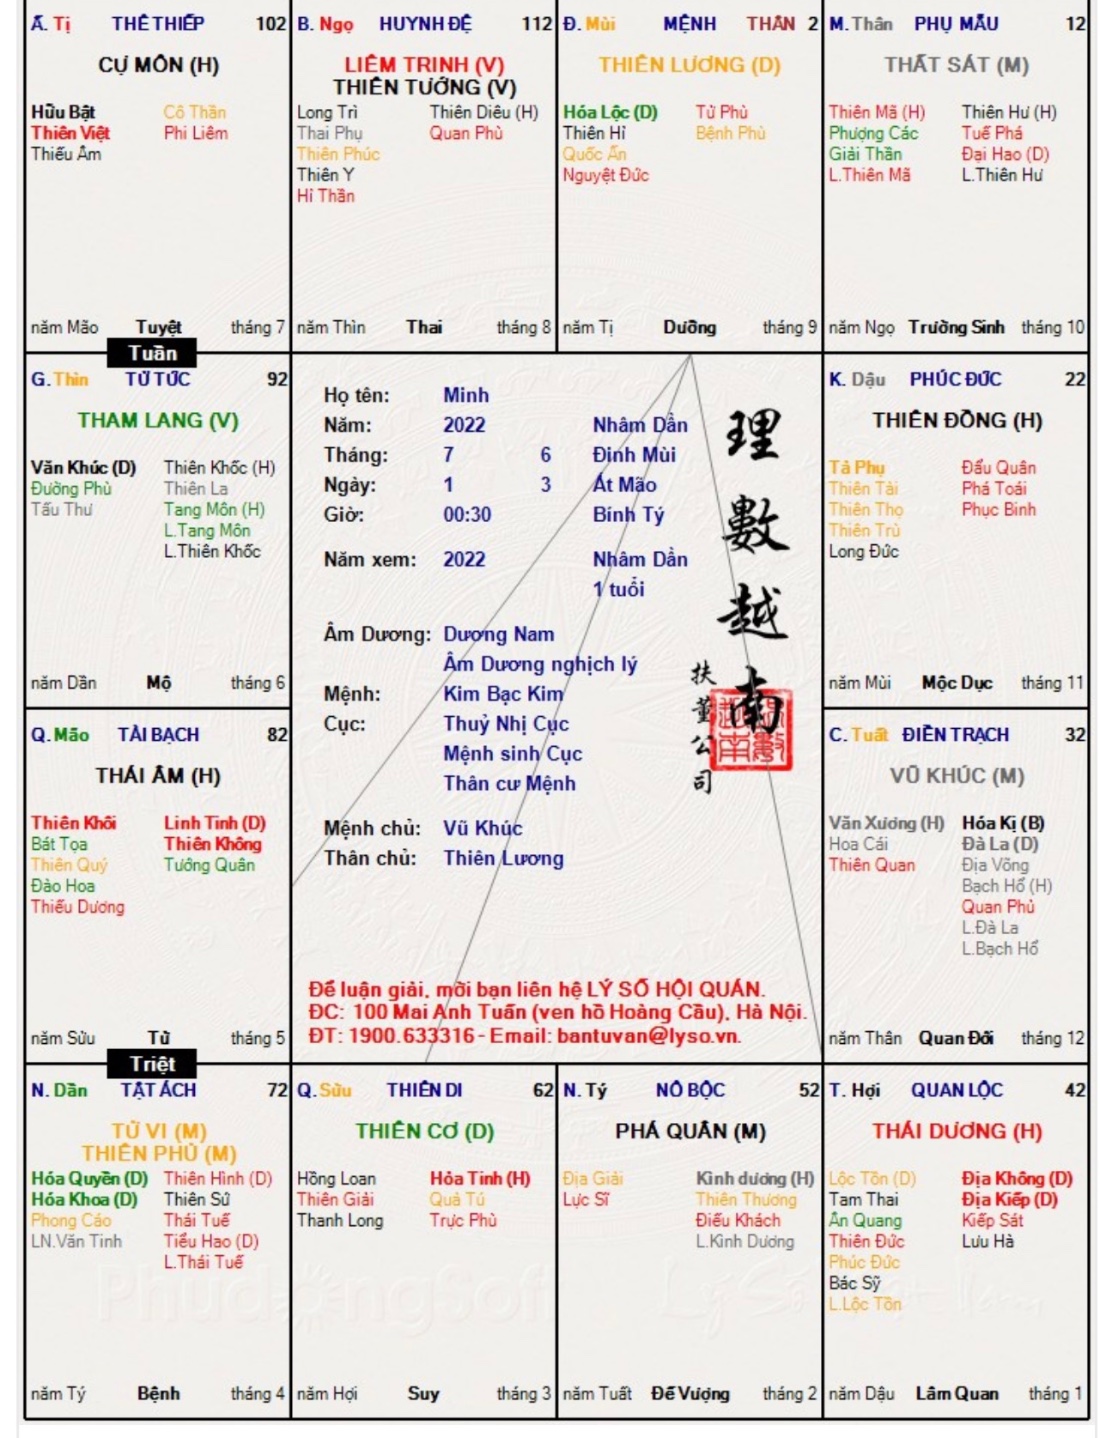 Ấ. Tị THÊ THIẾP 102
CỰ MÔN (H)
Hữu Bật Cô Thần
Thiên Việt Phi Liêm
Thiếu Âm
năm Mão Tuyệt tháng 7
B. Ngọ HUYNH ĐỆ 112
LIÊM TRINH (V)
THIÊN TƯỚNG (V)
Long Trì Thiên Diêu (H)
Thai Phụ Quan Phù
Thiên Phúc
Thiên Y
Hỉ Thần
năm Thìn Thai tháng 8
Đ. Mùi MỆNH THÂN 2
THIÊN LƯƠNG (D)
Hóa Lộc (D) Tử Phù
Thiên Hỉ Bệnh Phù
Quốc Ấn
Nguyệt Đức
năm Tị Dưỡng tháng 9
M. Thân PHỤ MẪU 12
THẤT SÁT (M)
Thiên Mã (H) Thiên Hư (H)
Phượng Các Tuế Phá
Giải Thần Đại Hao (D)
L.Thiên Mã L.Thiên Hư
năm Ngọ Trường Sinh tháng 10
Tuần
G. Thìn TỬ TỨC 92
THAM LANG (V)
Văn Khúc (D) Thiên Khốc (H)
Đường Phù Thiên La
Tấu Thư Tang Môn (H)
L.Tang Môn
L.Thiên Khốc
năm Dần Mộ tháng 6
Họ tên: Minh
Năm: 2022 Nhâm Dần
Tháng: 7 6 Đinh Mùi
Ngày: 1 3 Ất Mão
Giờ: 00:30 Bính Tý
Năm xem: 2022 Nhâm Dần
1 tuổi
Âm Dương: Dương Nam
Âm Dương nghịch lý
Mệnh: Kim Bạc Kim
Cục: Thuỷ Nhị Cục
Mệnh sinh Cục
Thân cư Mệnh
Mệnh chủ: Vũ Khúc
Thân chủ: Thiên Lương
理數越南
扶董公司
Để luận giải, mời bạn liên hệ LÝ SỐ HỘI QUÁN.
ĐC: 100 Mai Anh Tuấn (ven hồ Hoàng Cầu), Hà Nội.
ĐT: 1900.633316 - Email: bantuvan@lyso.vn.
K. Dậu PHÚC ĐỨC 22
THIÊN ĐỒNG (H)
Tả Phụ Đẩu Quân
Thiên Tài Phá Toái
Thiên Thọ Phục Binh
Thiên Trù
Long Đức
năm Mùi Mộc Dục tháng 11
Q. Mão TÀI BẠCH 82
THÁI ÂM (H)
Thiên Khôi Linh Tinh (D)
Bát Tọa Thiên Không
Thiên Quý Tướng Quân
Đào Hoa
Thiếu Dương
năm Sửu Tử tháng 5
C. Tuất ĐIỀN TRẠCH 32
VŨ KHÚC (M)
Văn Xương (H) Hóa Kị (B)
Hoa Cái Đà La (D)
Thiên Quan Địa Võng
Bạch Hổ (H)
Quan Phủ
L.Đà La
L.Bạch Hổ
năm Thân Quan Đới tháng 12
Triệt
N. Dần TẬT ÁCH 72
TỬ VI (M)
THIÊN PHỦ (M)
Hóa Quyền (D) Thiên Hình (D)
Hóa Khoa (D) Thiên Sứ
Phong Cáo Thái Tuế
LN.Văn Tinh Tiểu Hao (D)
L.Thái Tuế
năm Tý Bệnh tháng 4
Q. Sửu THIÊN DI 62
THIÊN CƠ (D)
Hồng Loan Hỏa Tinh (H)
Thiên Giải Quả Tú
Thanh Long Trực Phù
năm Hợi Suy tháng 3
N. Tý NÔ BỘC 52
PHÁ QUÂN (M)
Địa Giải Kình dương (H)
Lực Sĩ Thiên Thương
Điếu Khách
L.Kình Dương
năm Tuất Đế Vượng tháng 2
T. Hợi QUAN LỘC 42
THÁI DƯƠNG (H)
Lộc Tồn (D) Địa Không (D)
Tam Thai Địa Kiếp (D)
Ân Quang Kiếp Sát
Thiên Đức Lưu Hà
Phúc Đức
Bác Sỹ
L.Lộc Tồn
năm Dậu Lâm Quan tháng 1